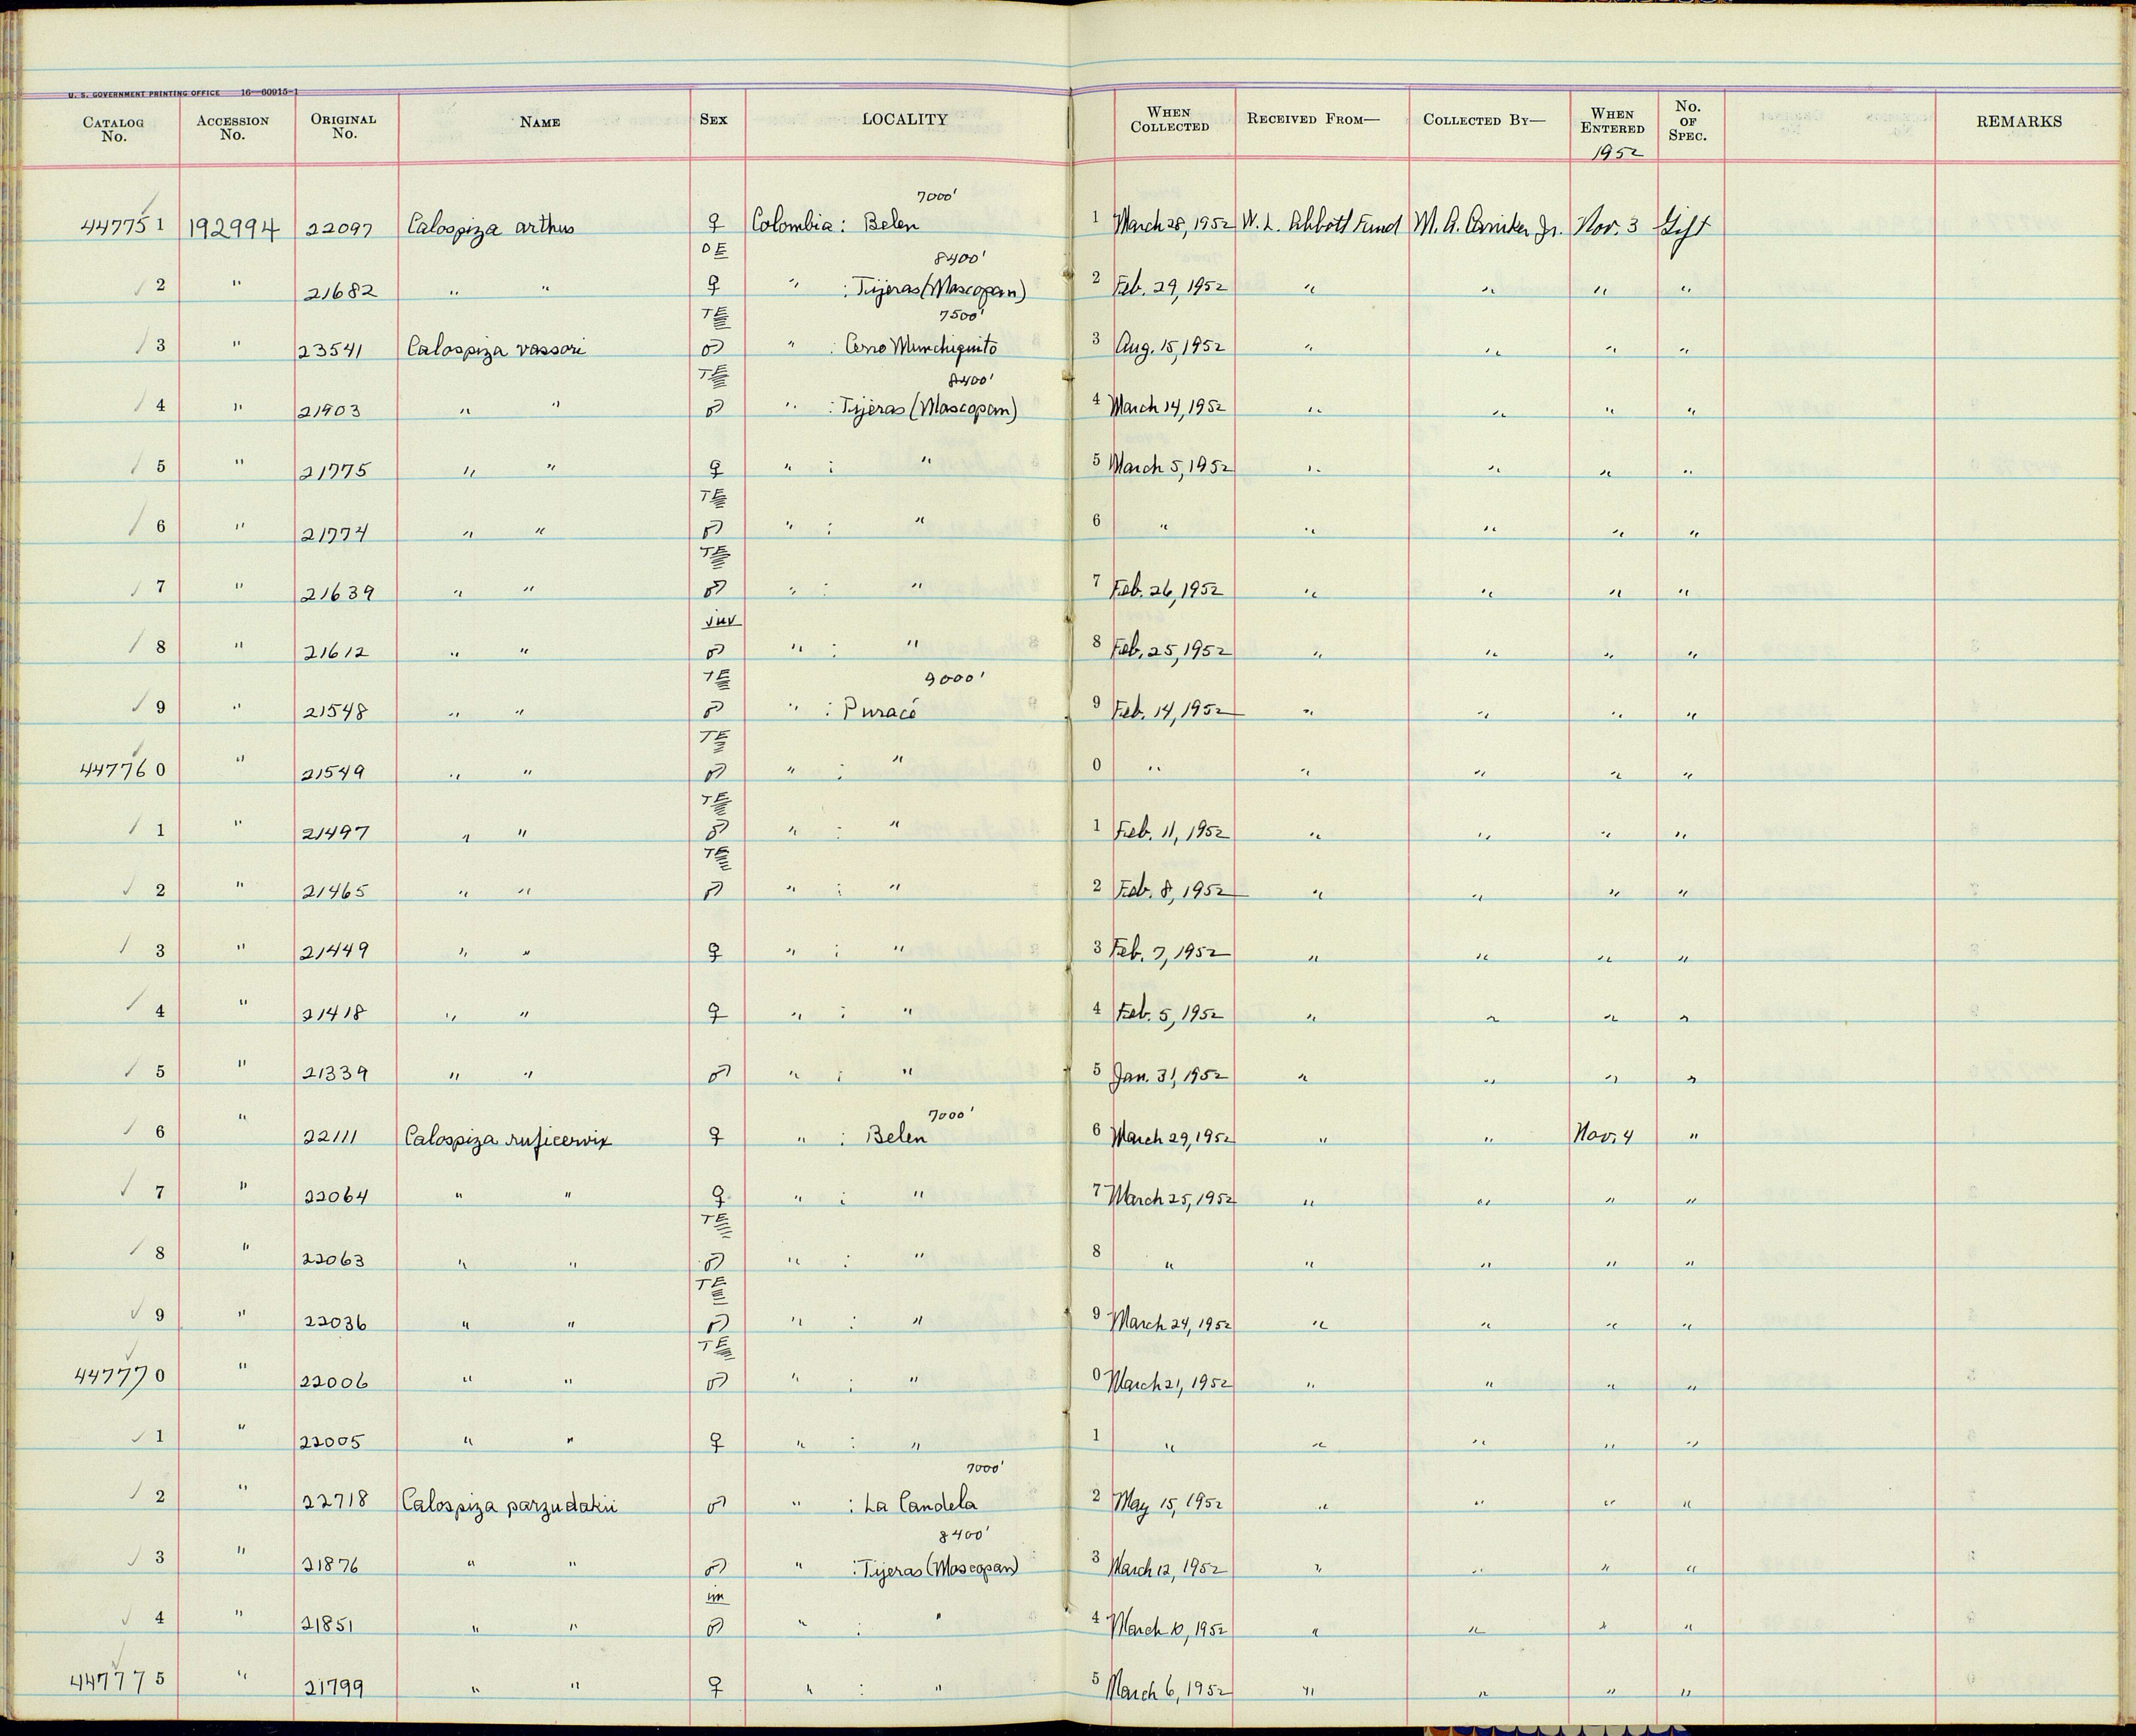 U. S. GOVERNMENT PRINTING OFFICE 16—60915-1
CATALOG No. ACCESSION No. ORIGINAL No. NAME SEX LOCALITY WHEN COLLECTED RECEIVED FROM— COLLECTED BY— WHEN ENTERED No. OF SPEC. REMARKS
1952
7000'
447751 192994 22097 Calospiza arthus ♀ Colombia: Belen 1 March 28, 1952 W. L. Abbott Fund M. A. Carriker Jr. Nov. 3 Gift
OE 8400'
2 " 21682 " " ♀ " : Tijeras (Moscopan) 2 Feb. 29, 1952 " " " "
TE 7500'
3 " 23541 Calospiza vassori ♂ " : Cerro Munchiquito 3 Aug. 15, 1952 " " " "
TE 8400'
4 " 21903 " " ♂ " : Tijeras (Moscopan) 4 March 14, 1952 " " " "
5 " 21775 " " ♀ " : " 5 March 5, 1952 " " " "
TE
6 " 21774 " " ♂ " : " 6 " " " " "
TE
7 " 21639 " " ♂ " : " 7 Feb. 26, 1952 " " " "
juv
8 " 21612 " " ♂ " : " 8 Feb. 25, 1952 " " " "
TE 9000'
9 " 21548 " " ♂ " : Puracé 9 Feb. 14, 1952 " " " "
TE
447760 " 21549 " " ♂ " : " 0 " " " " "
TE
1 " 21497 " " ♂ " : " 1 Feb. 11, 1952 " " " "
TE
2 " 21465 " " ♂ " : " 2 Feb. 8, 1952 " " " "
3 " 21449 " " ♀ " : " 3 Feb. 7, 1952 " " " "
4 " 21418 " " ♀ " : " 4 Feb. 5, 1952 " " " "
5 " 21339 " " ♂ " : " 5 Jan. 31, 1952 " " " "
7000'
6 " 22111 Calospiza ruficervix ♀ " : Belen 6 March 29, 1952 " " Nov. 4 "
7 " 22064 " " ♀ " : " 7 March 25, 1952 " " " "
TE
8 " 22063 " " ♂ " : " 8 " " " " "
TE
9 " 22036 " " ♂ " : " 9 March 24, 1952 " " " "
TE
447770 " 22006 " " ♂ " : " 0 March 21, 1952 " " " "
1 " 22005 " " ♀ " : " 1 " " " " "
7000'
2 " 22718 Calospiza parzudakii ♂ " : La Candela 2 May 15, 1952 " " " "
8400'
3 " 21876 " " ♂ " : Tijeras (Moscopan) 3 March 12, 1952 " " " "
im
4 " 21851 " " ♂ " : " 4 March 10, 1952 " " " "
447775 " 21799 " " ♀ " : " 5 March 6, 1952 " " " "